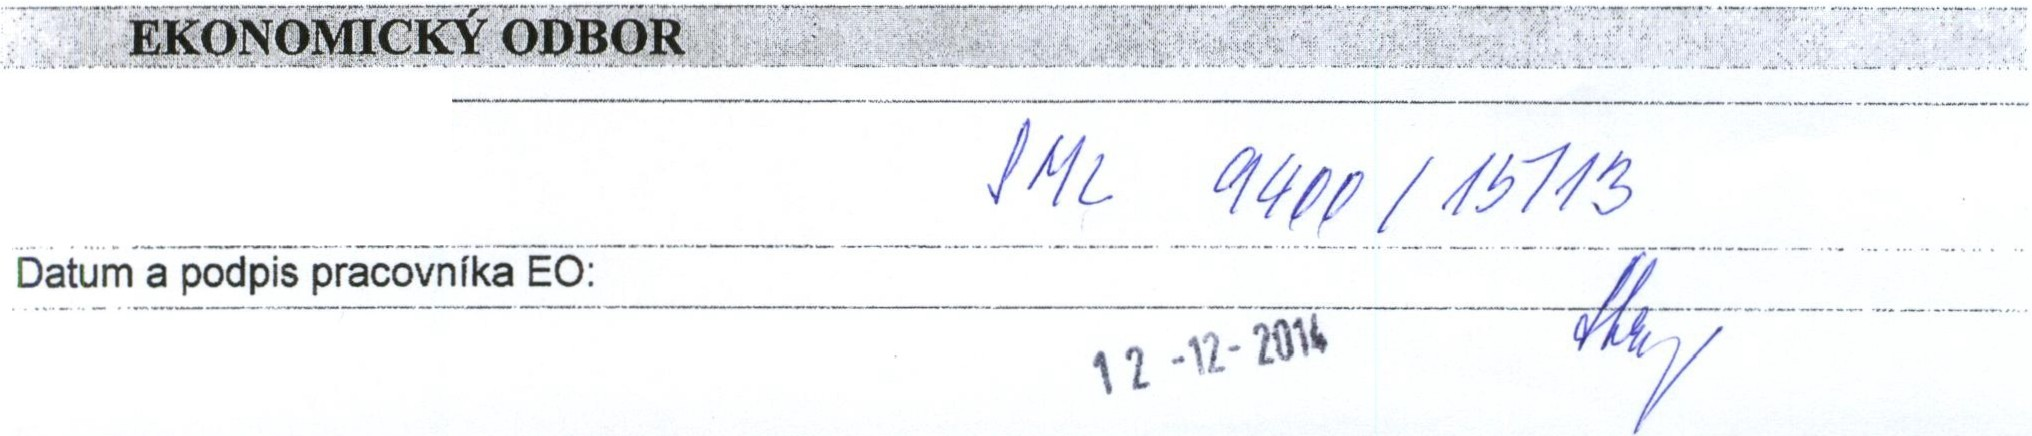 EKONOMICKÝ ODBOR
SML 9400 / 15/13
Datum a podpis pracovníka EO:
12 -12- 2014